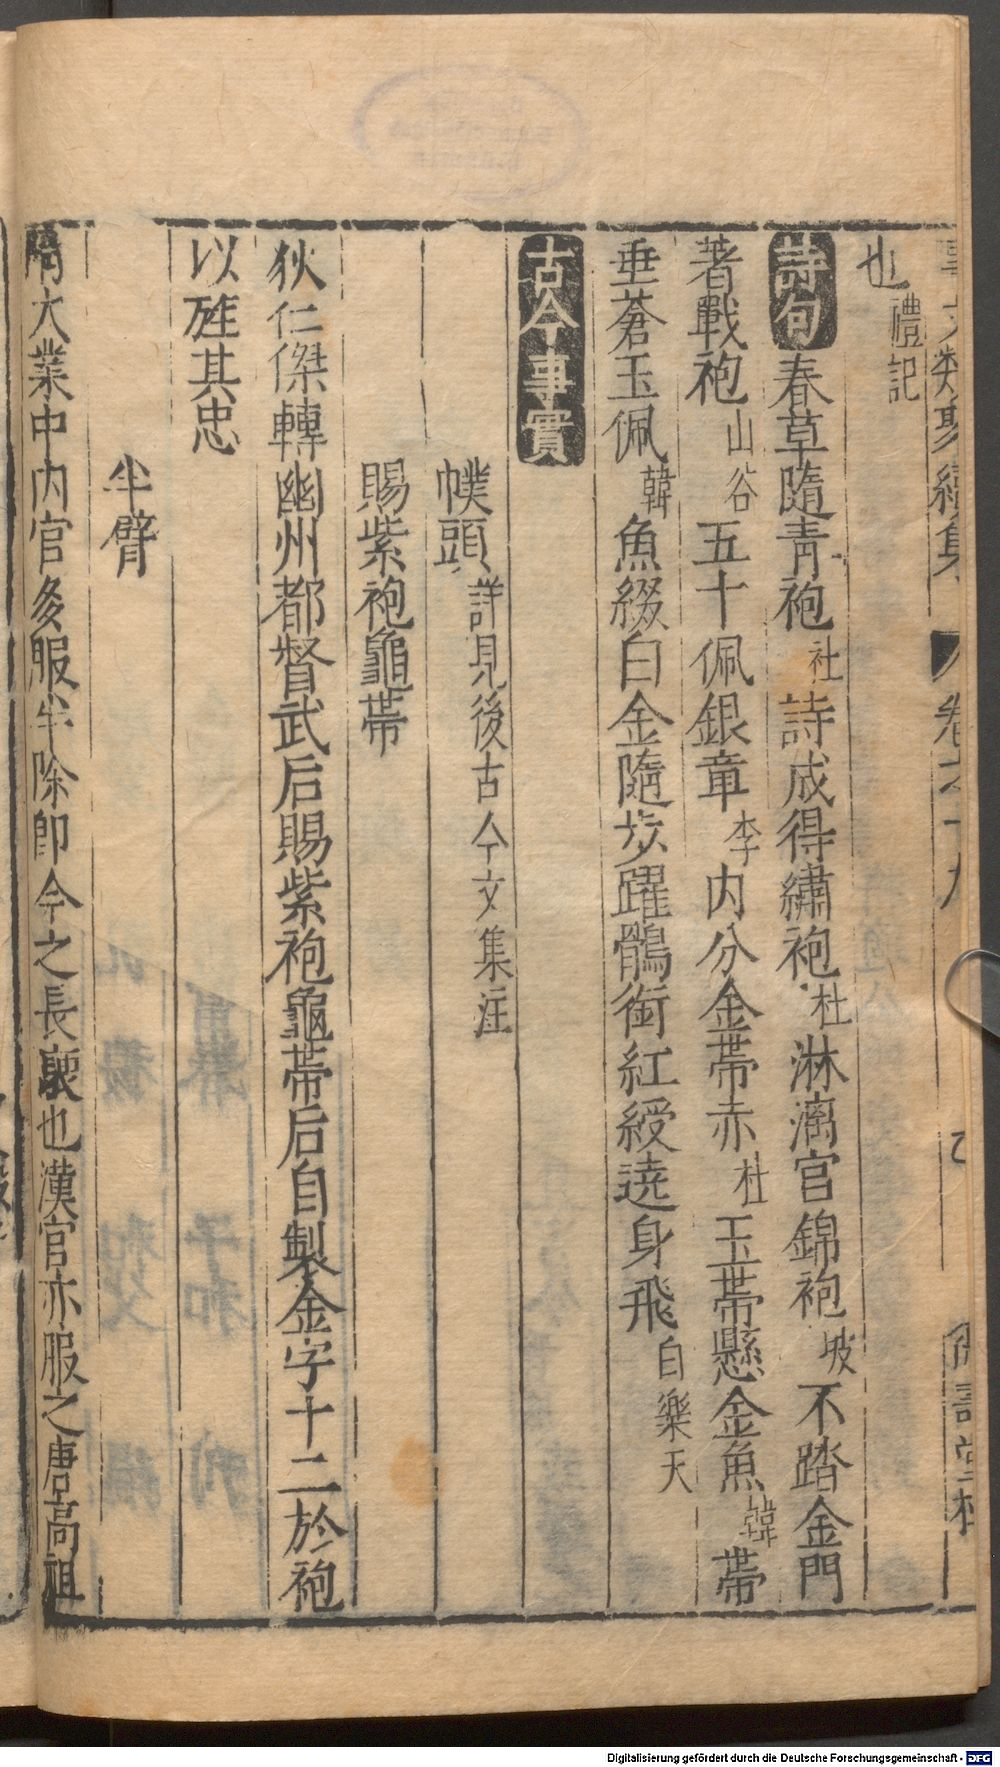 事文類聚續集 卷之十九 九 德壽堂梓
也禮記
詩句春草隨青袍杜詩成得繡袍杜淋漓官錦袍坡不踏金門
著戰袍山谷五十佩銀章李内分金帶赤杜玉帶懸金魚韓帶
垂蒼玉佩韓魚綴白金隨步躍鶻銜紅綬遶身飛白樂天
古今事實
幞頭詳見後古今文集注
賜紫袍龜帶
狄仁傑轉幽州都督武后賜紫袍龜帶后自製金字十二於袍
以旌其忠
半臂
隋大業中内官多服半除即今之長褒也漢官亦服之唐高祖
Digitalisierung gefördert durch die Deutsche Forschungsgemeinschaft - DFG